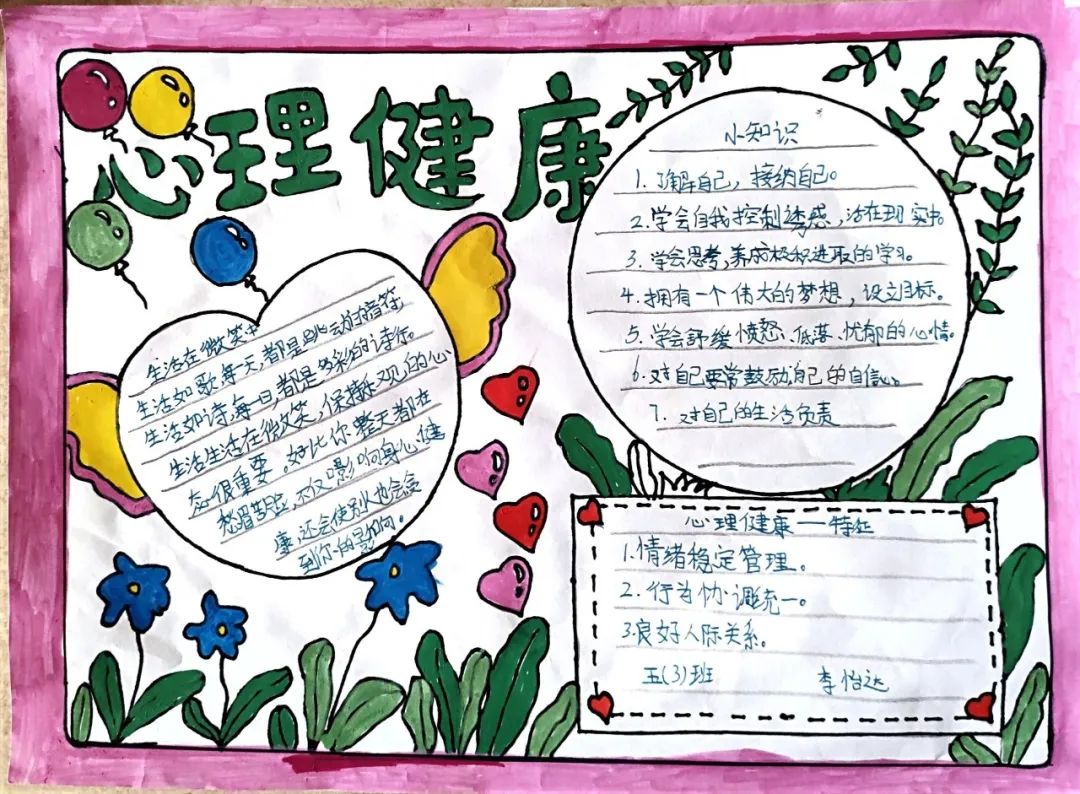 心理健康
生活在微笑中
生活如歌每天,都是跳动的音符
生活如诗,每一日,都是多彩的诗行。
生活生活在微笑,保持乐观的心
态很重要。好比你整天都在
愁眉苦脸,不仅影响身心健
康,还会使别人也会受
到你的影响。
小知识
1.了解自己,接纳自己。
2.学会自我控制诱惑,活在现实中。
3.学会思考,养成极积进取的学习。
4.拥有一个伟大的梦想,设立目标。
5.学会舒缓愤怒、低落、忧郁的心情。
6.对自己要常鼓励自己的自信心。
7.对自己的生活负责
心理健康——特征
1.情绪稳定管理。
2.行为协调统一。
3.良好人际关系。
五(3)班 李怡达